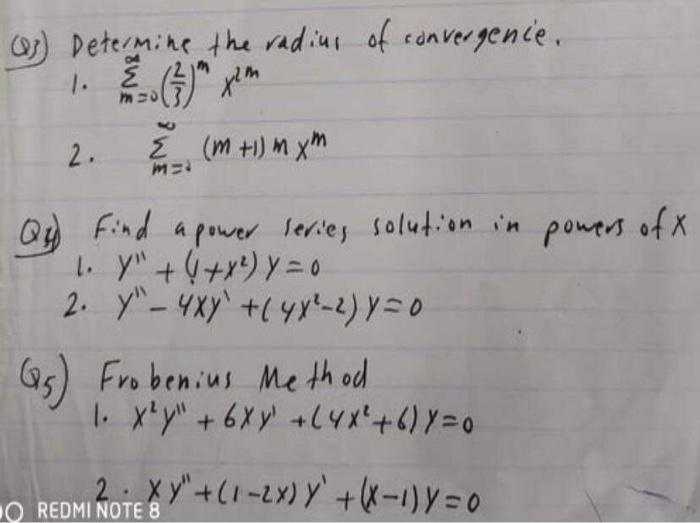 Q3) Determine the radius of convergence.
1. ∞ Σ m=0 (2/3)^m x^2m
2. ∞ Σ (m+1) m x^m
Q4) Find a power series solution in powers of x
1. y'' + (1+x²) y = 0
2. y'' - 4xy' + (4x²-2) y = 0
Q5) Frobenius Method
1. x²y'' + 6xy' + (4x²+6) y = 0
2. xy'' + (1-2x) y' + (x-1) y = 0
REDMI NOTE 8